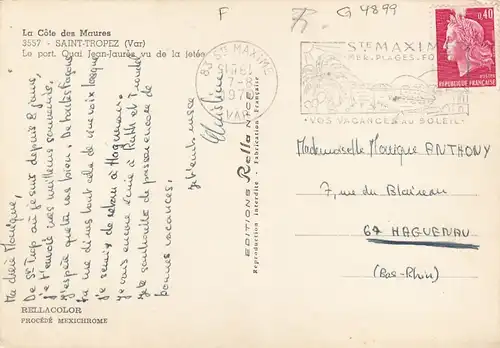 La Côte des Maures
3557 - SAINT-TROPEZ (Var)
Le port. Quai Jean-Jaurès vu de la jetée
F
G 4899
0,40
REPUBLIQUE FRANÇAISE
83 STE MAXIME
VAR
STE MAXIME
MER. PLAGES.
VOS VACANCES AU SOLEIL
Ma chère Monique,
De St Trop où je suis depuis 8 jours,
je t'envoie mes meilleurs souvenirs.
J'espère que tu vas bien.
tu me diras tout cela de vive voix lorsque
je serai de retour à Haguenau.
je vais encore à
je te souhaite de passer encore de
bonnes vacances.
Je t'embrasse
Christine
EDITIONS Rella NICE
Reproduction interdite - Fabrication Française
Mademoiselle Monique ANTHONY
7, rue du Blaireau
67 HAGUENAU
(Bas-Rhin)
RELLACOLOR
PROCÉDÉ MEXICHROME